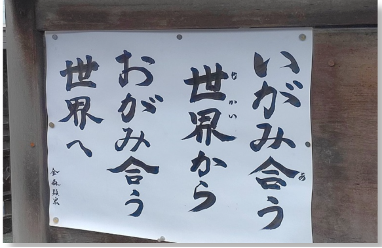 いがみ合う
世界から
おがみ合う
世界へ